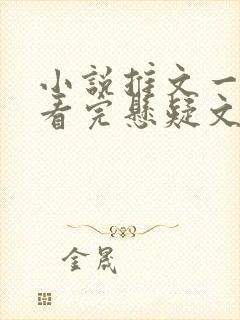 小说推文一
看完悬疑文
金晟